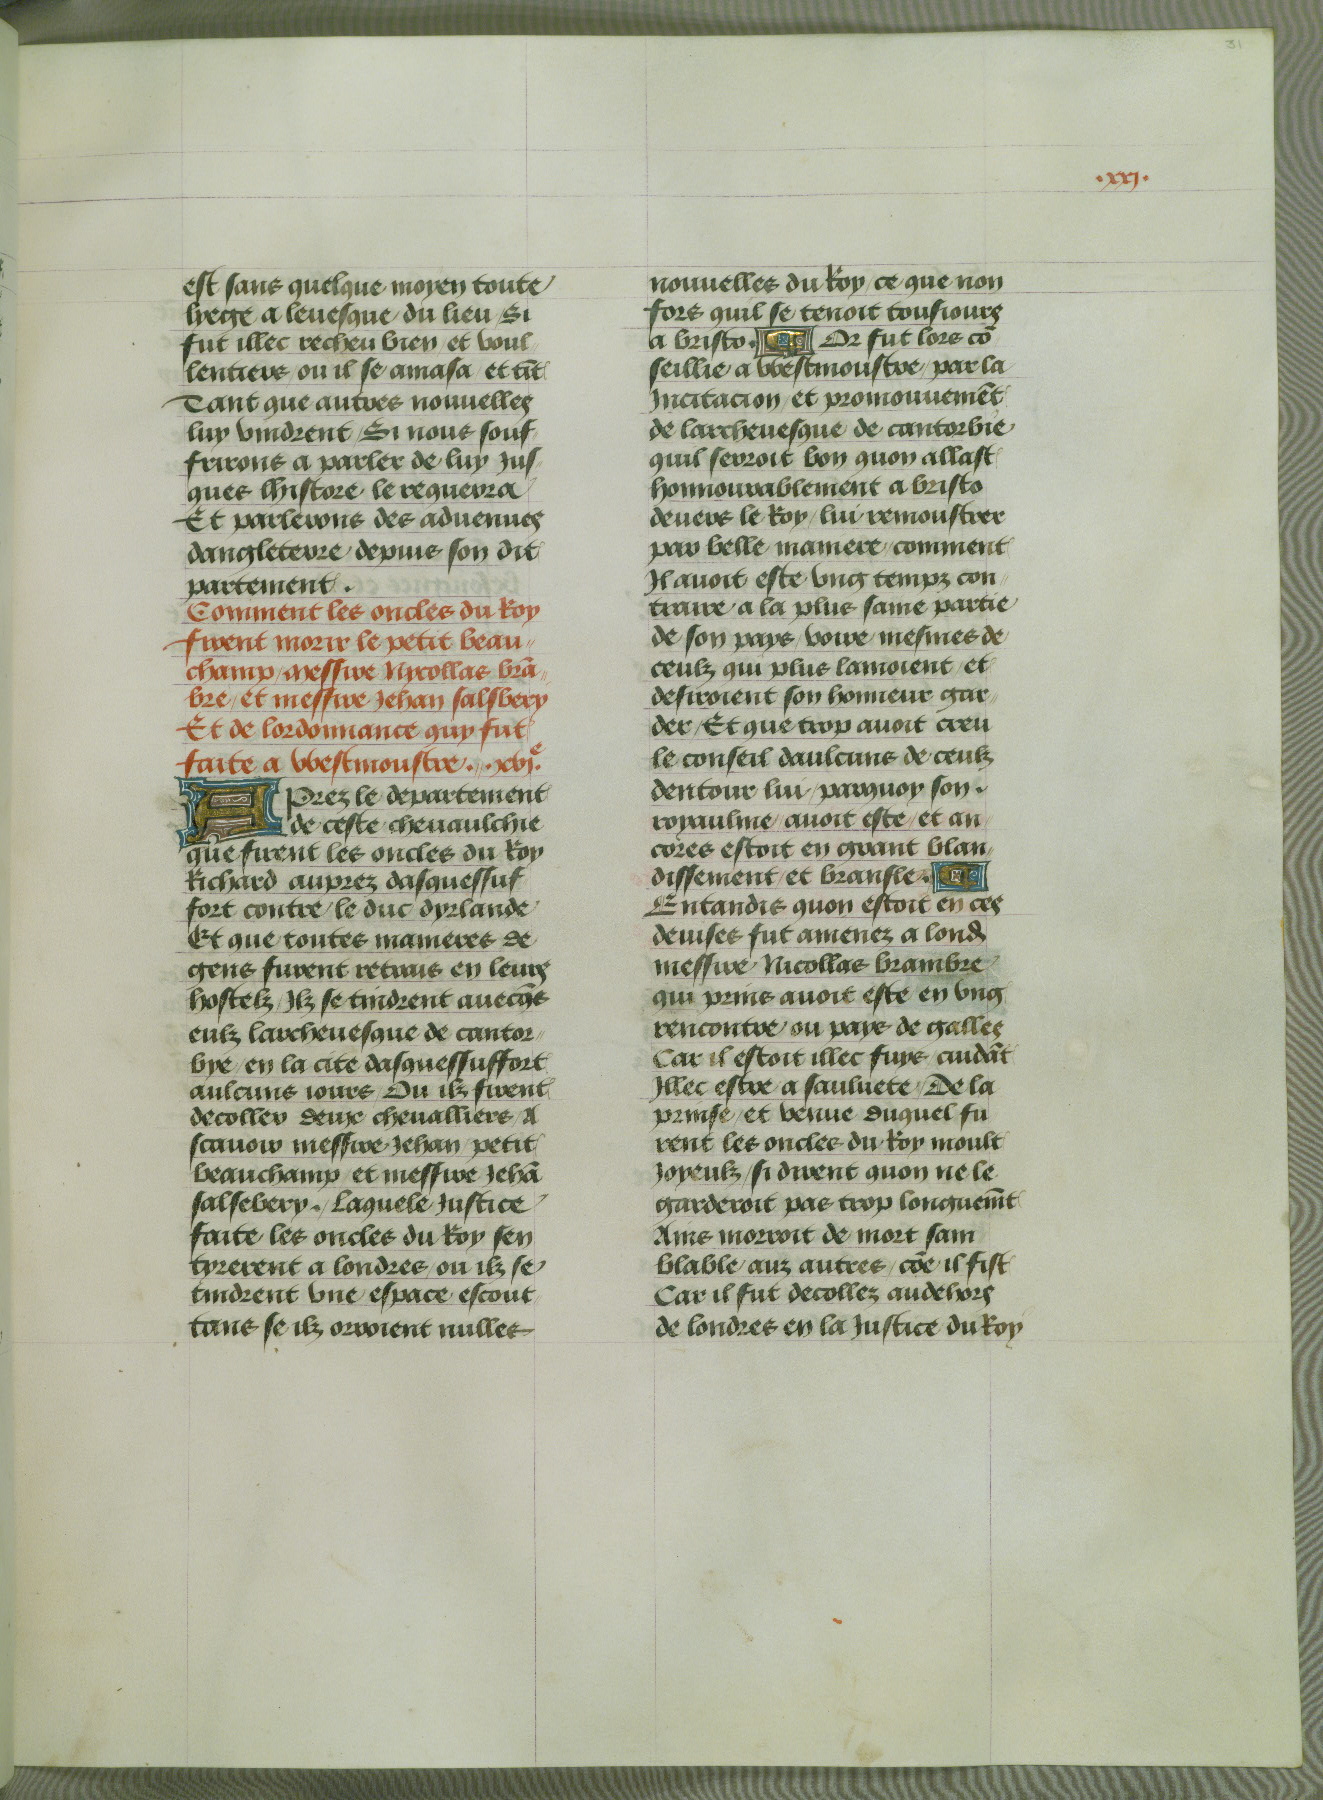 31
·xxj·
est sans quelque moyen toute
lyege a leuesque du lieu Si
fut illec recheu bien et voul
lentiers ou il se amasa et tit
Tant que autres nouuelles
luy vindrent Si nous souf
frirons a parler de luy Jus
ques lhistore le requerra
Et parlerons des aduenues
dangleterre depuis son dit
partement .
Comment les oncles du Roy
firent morir le petit beau
champ messire Nicollas brā
bre et messire Jehan salsbery
Et de lordonnance quy fut
faite a Westmoustre . .xvj.e
APrez le departement
de ceste cheuaulchie
que firent les oncles du Roy
Richard auprez dasquessuf
fort contre le duc dyrlande
Et que toutes manieres de
gens furent retrais en leurs
hostelz Jlz se tindrent auecq̄s
eulz larcheuesque de cantor
bye en la cite dasquessuffort
aulcuns iours Ou ilz firent
decoller deux cheualliers A
scauoir messire Jehan petit
beauchamp et messire Jehā
salsebery . Laquele Justice
faite les oncles du Roy sen
tyrerent a londres ou ilz se
tindrent vne espace escout
tans se ilz orroient nulles
nouuelles du Roy ce que non
fors quil se tenoit tousiours
a bristo. Or fut lors cō
seillie a Westmoustre par la
Jncitacion et promouuemēt
de larcheuesque de cantorbie
quil serroit bon quon allast
honnourablement a bristo
deuers le Roy lui remoustrer
par belle maniere comment
Jl auoit este vng tempz con
traire a la plus saine partie
de son pays voire mesmes de
ceulz qui plus lamoient et
desiroient son honneur gar
der Et que trop auoit creu
le conseil daulcuns de ceulz
dentour lui parquoy son .
royaulme auoit este et an
cores estoit en grant blan
dissement et bransle .
Entandis quon estoit en ces
deuises fut amenez a lond
messire Nicollas brambre
qui prins auoit este en vng
rencontre ou pays de galles
Car il estoit illec fuys cuidāt
Jllec estre a sauluete De la
prinse et venue duquel fu
rent les oncles du Roy moult
Joyeulz si dirent quon ne le
garderoit pas trop longuem̄t
Ains morroit de mort sam
blable auz autres cōe il fist
Car il fut decollez audehors
de londres en la Justice du Roy